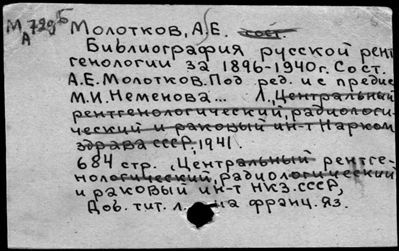 М729Б
А
Молотков, А.Е. сост.
Библиография русской рент
генологии за 1896-1940г. Сост.
А.Е.Молотков. Под ред. и с предис
М.И.Неменова... Л., Центральный
рентгенологический, радиологи-
ческий и раковый ин-т Нарком
здрава СССР, 1941.
684 стр. , Центральный рентге-
нологический, радиологический
и раковый ин-т НКЗ.СССР,
Доб. тит. л. на франц. яз.